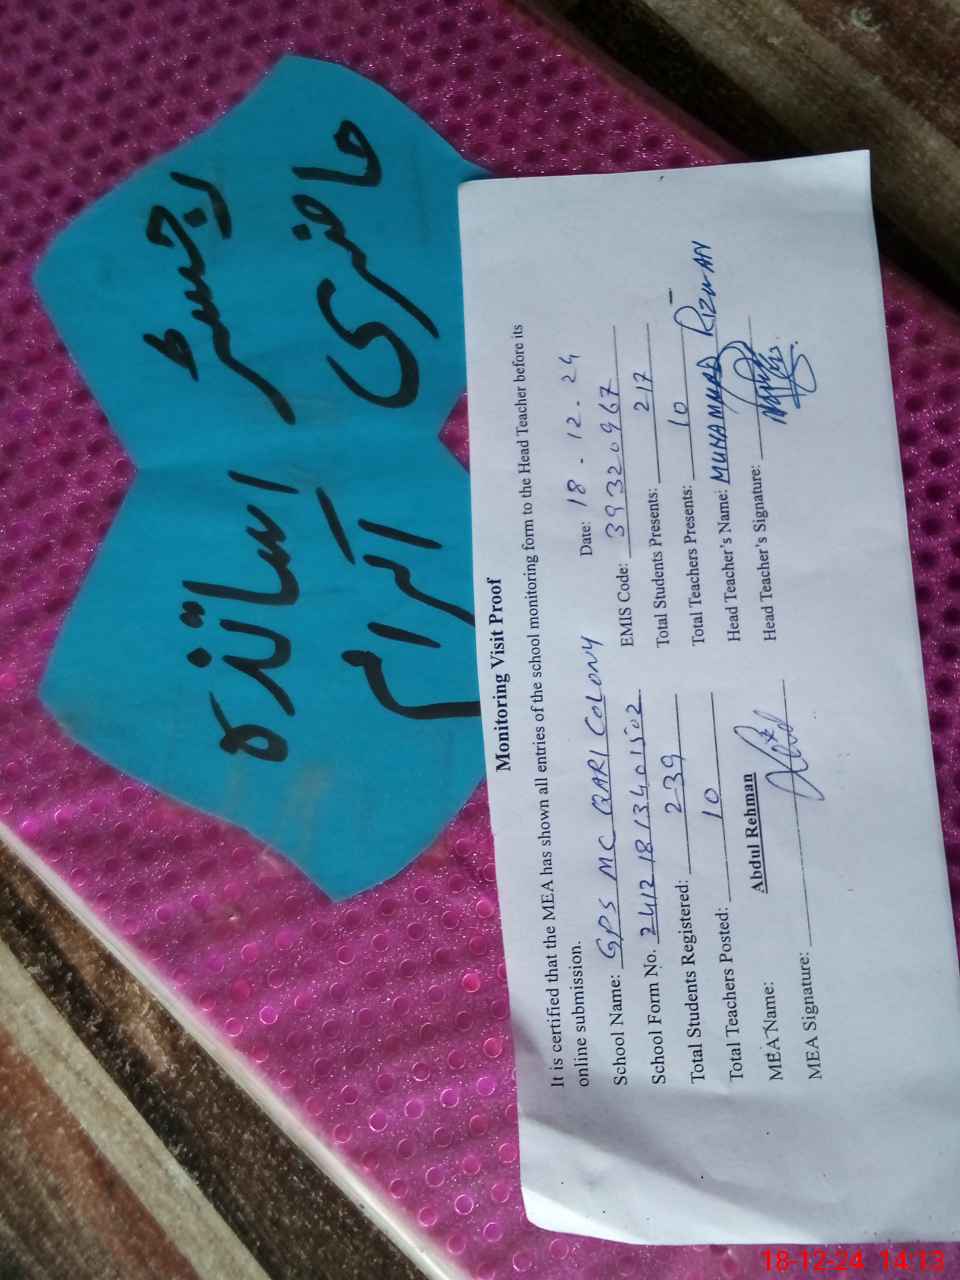 رجسٹر
حاضری
اساتذہ
اکرام
Monitoring Visit Proof
It is certified that the MEA has shown all entries of the school monitoring form to the Head Teacher before its
online submission.
Date: 18 . 12 . 24
School Name: GPS MC QARI COLONY
EMIS Code: 39320967
School Form No. 2412181340 1502
Total Students Presents: 217
Total Students Registered: 239
Total Teachers Presents: 10
Total Teachers Posted: 10
Head Teacher's Name: MUHAMMAD RIZWAN
MEA Name: Abdul Rehman
Head Teacher's Signature:
MEA Signature:
18-12-24 14:13